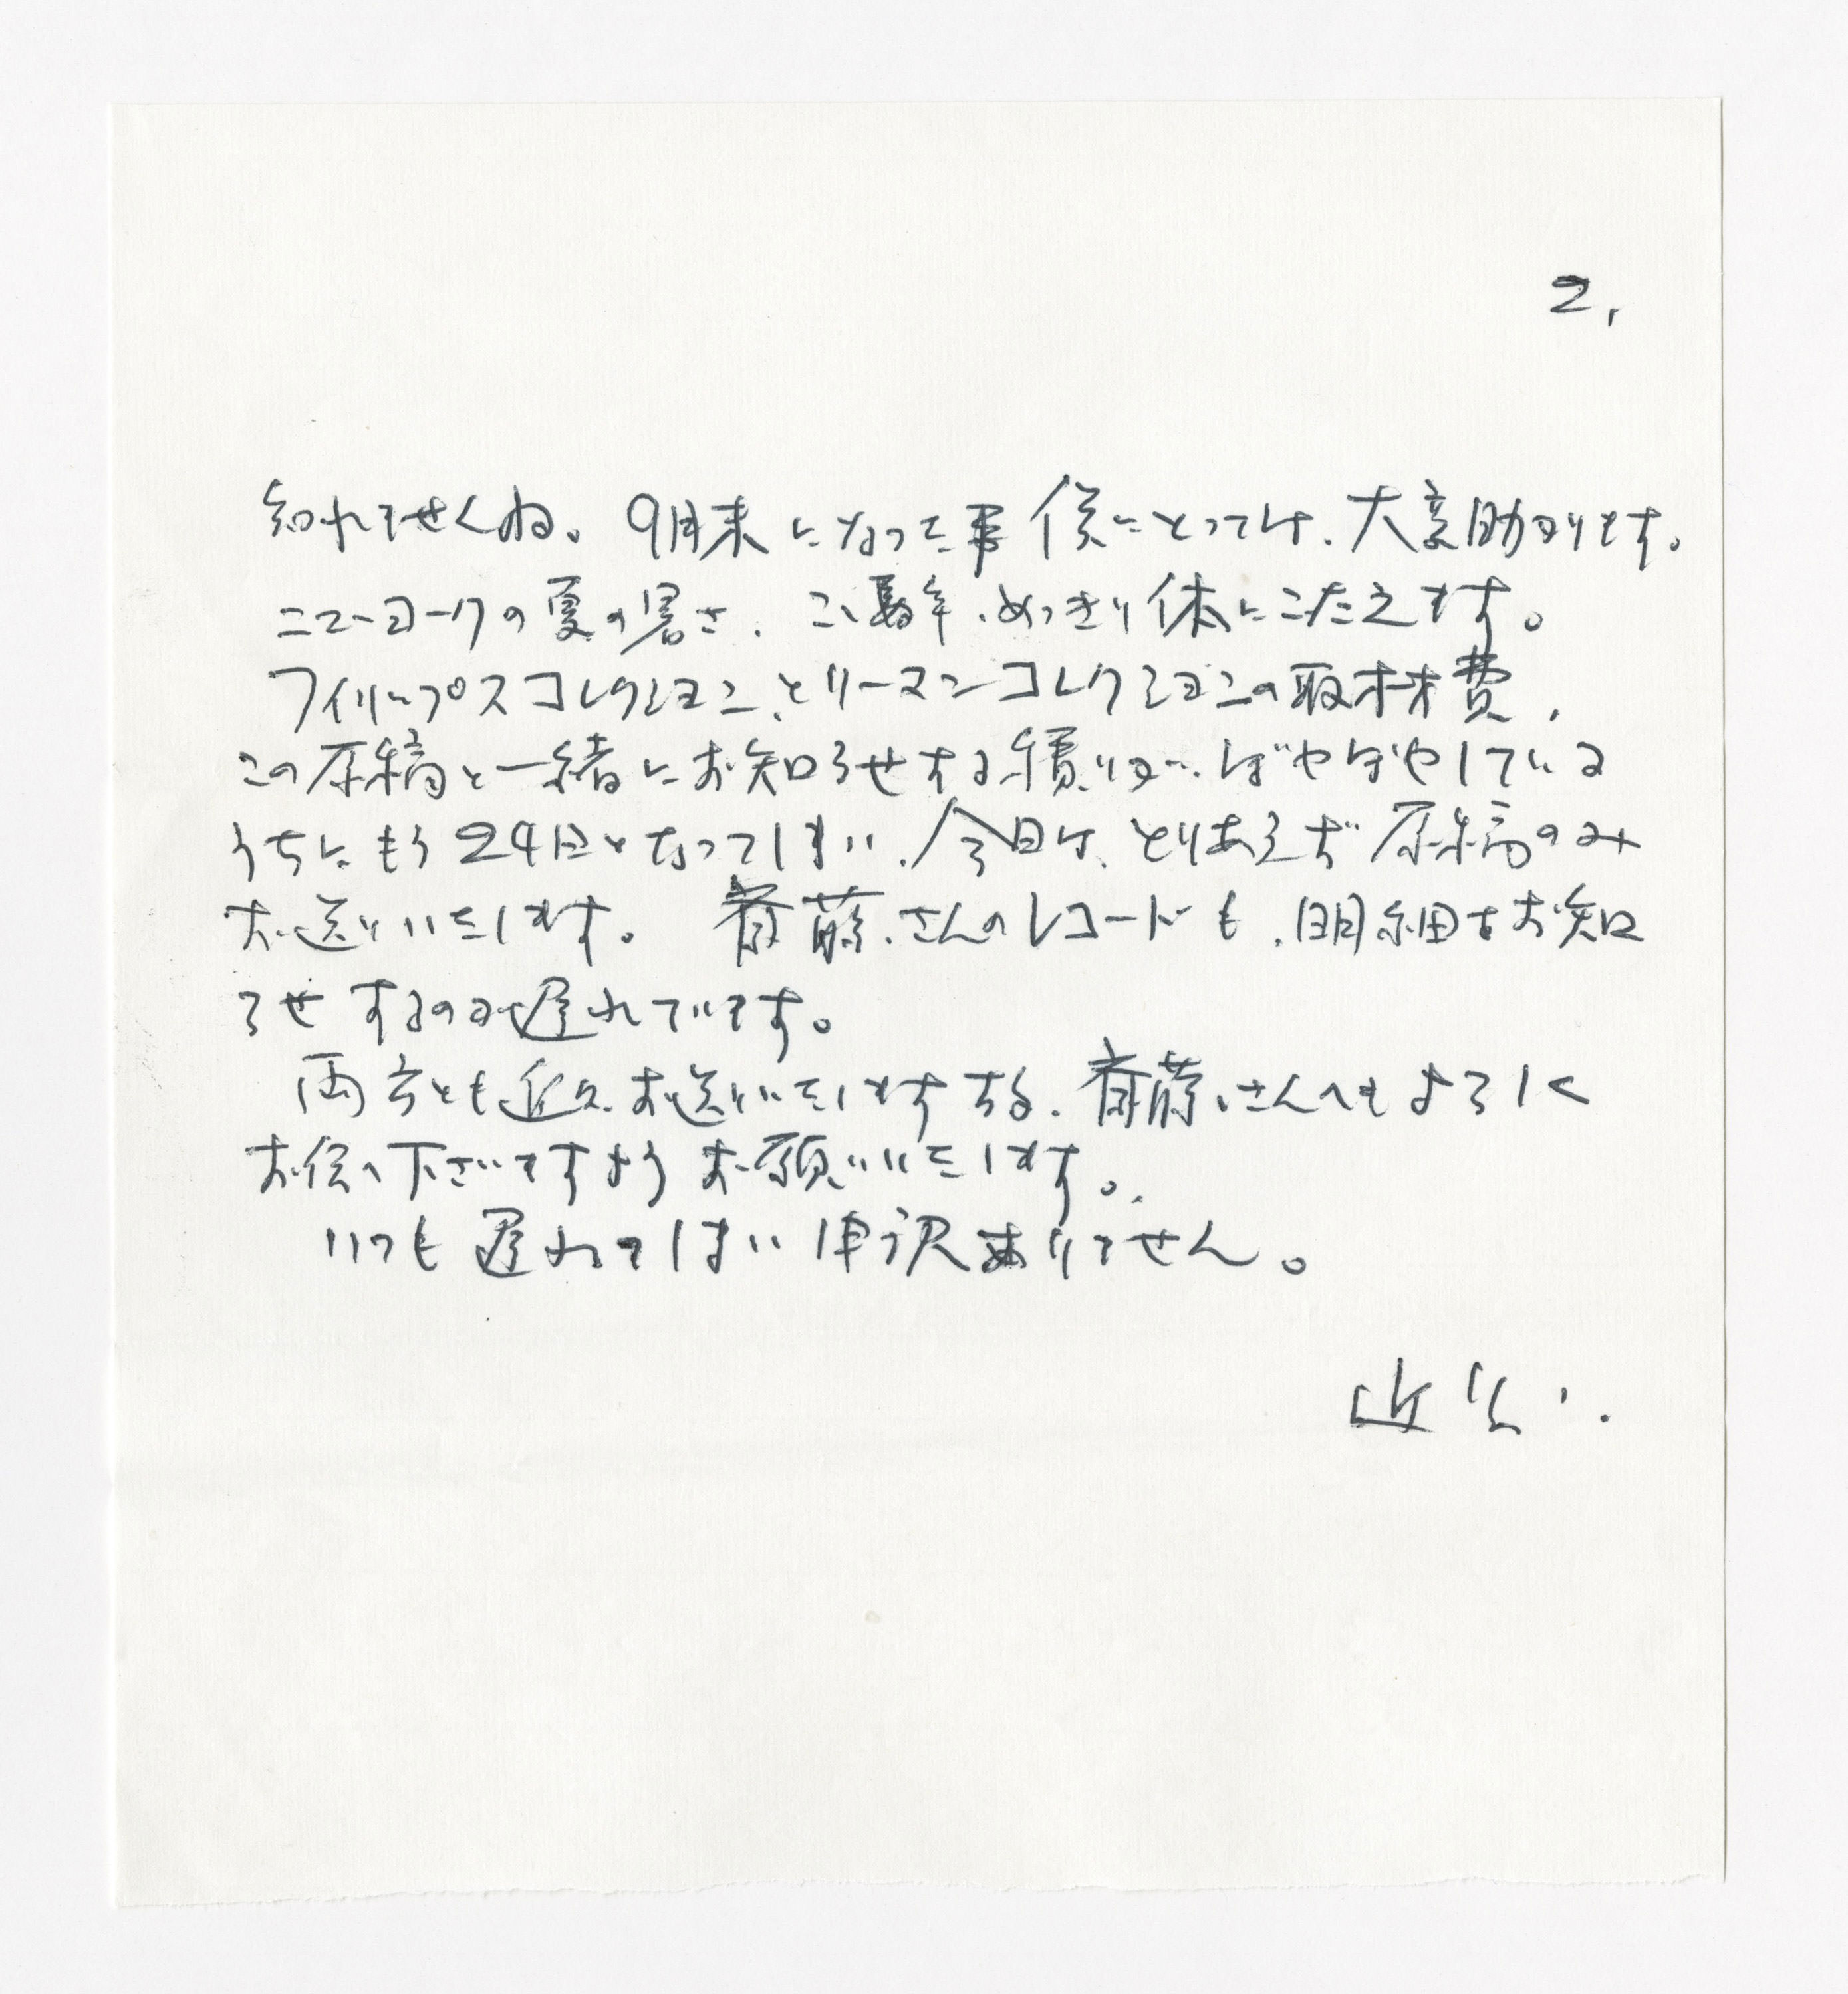 2.
知れませんね。9月末になった事 僕にとっては、大変助かります。
ニューヨークの夏の暑さ、ここ数年、めっきり体にこたえます。
フィリップスコレクション、とリーマンコレクションの取材費、
この原稿と一緒にお知らせする積りが、ぼやぼやしている
うちにもう24日となってしまい、今日は、とりあえず原稿のみ
お送りいたします。 斉藤さんのレコードも、明細をお知
らせするのみ遅れています。
両方とも近々お送りいたしますから、斉藤さんへもよろしく
お伝へ下さいますよう お願いいたします。
いつも遅れてしまい申訳ありません。
近